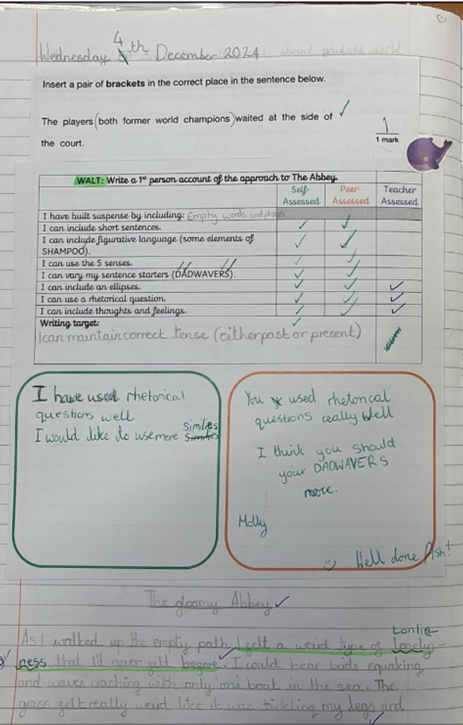 Wednesday 4th December 2024
Insert a pair of brackets in the correct place in the sentence below.
The players (both former world champions) waited at the side of
the court.
1
1 mark
WALT: Write a 1st person account of the approach to The Abbey.
Self-Assessed Peer-Assessed Teacher Assessed
I have built suspense by including: Empty words and
I can include short sentences.
I can include figurative language (some elements of
SHAMPOO).
I can use the 5 senses.
I can vary my sentence starters (DADWAVERS).
I can include an ellipses.
I can use a rhetorical question.
I can include thoughts and feelings.
Writing target:
I can maintain correct tense (either past or present)
I have used rhetorical
questions well
I would like to use more Similies
You used rhetorical
questions really well
I think you should
your DADWAVERS
more.
Molly
Well done Ash!
The gloomy Abbey
As I walked up the empty path I felt a weird type of lonely-
ness that I'd never felt before. I could hear birds squaking
and waves crashing with only one boat in the sea. The
grass felt really weird like it was tickling my legs and